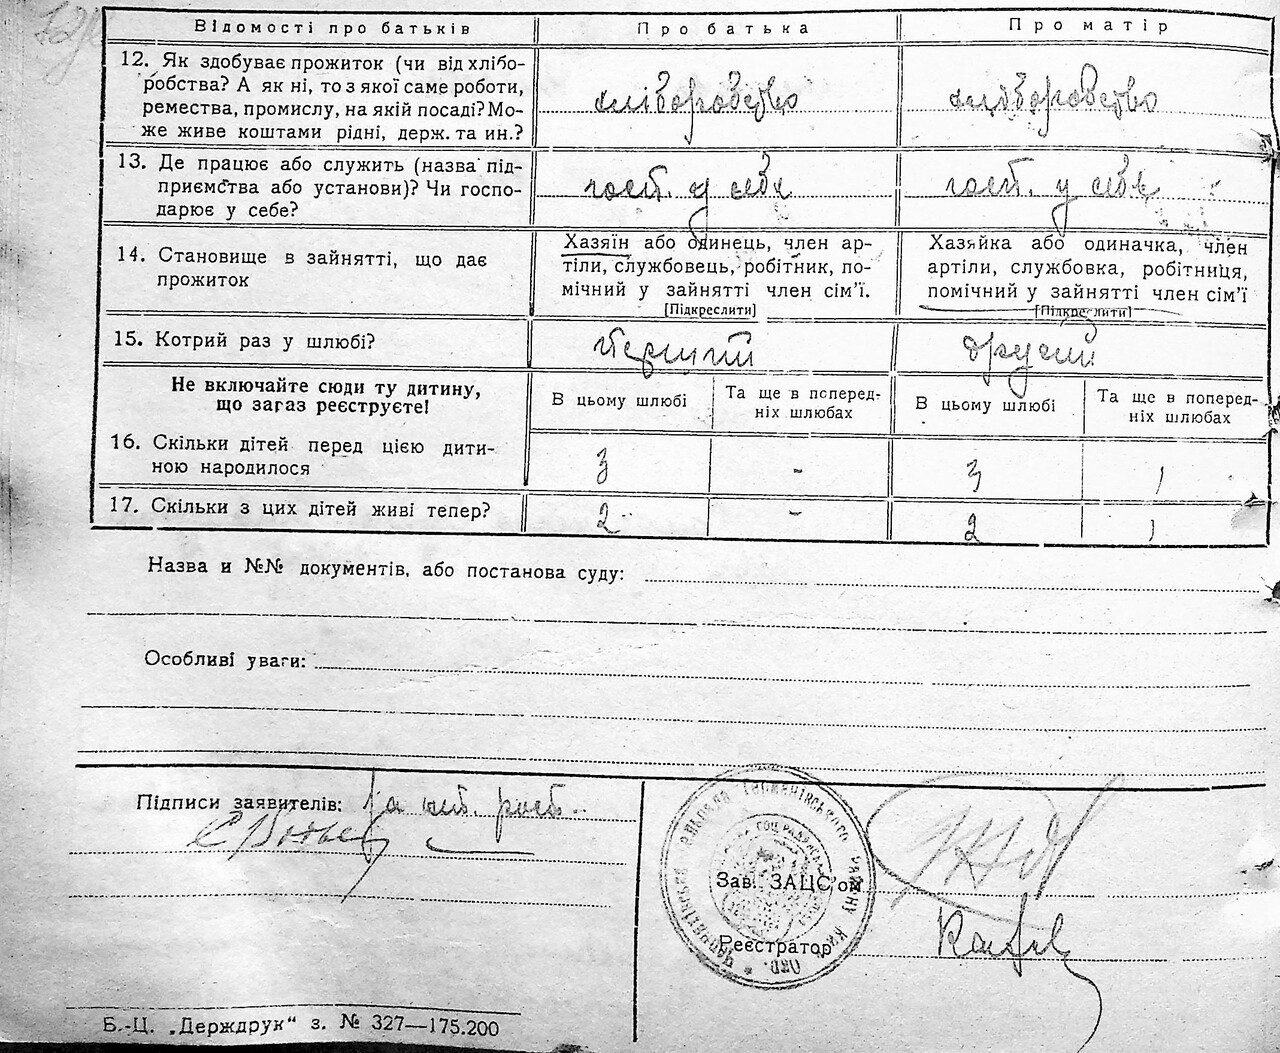 Відомості про батьків Про батька Про матір
12. Як здобуває прожиток (чи від хлібо-
робства? А як ні, то з якої саме роботи,
ремества, промислу, на якій посаді? Мо-
же живе коштами рідні, держ. та ин.?
хліборобство хліборобство
13. Де працює або служить (назва під-
приємства або установи)? Чи госпо-
дарює у себе?
госп. у себе госп. у себе
14. Становище в зайнятті, що дає
прожиток
Хазяїн або одинець, член ар-
тіли, службовець, робітник, по-
мічний у зайнятті член сім'ї.
[Підкреслити]
Хазяйка або одиначка, член
артіли, службовка, робітниця,
помічний у зайнятті член сім'ї
[Підкреслити]
15. Котрий раз у шлюбі? перший другий
Не включайте сюди ту дитину,
що зараз реєструєте!
В цьому шлюбі
Та ще в поперед-
ніх шлюбах
В цьому шлюбі
Та ще в поперед-
ніх шлюбах
16. Скільки дітей перед цією дити-
ною народилося
3 - 3 1
17. Скільки з цих дітей живі тепер? 2 - 2 1
Назва и №№ документів, або постанова суду:
Особливі уваги:
Підписи заявителів: за
Зав. ЗАЦС'ом
Реєстратор
Б.-Ц. „Держдрук“ з. № 327—175.200